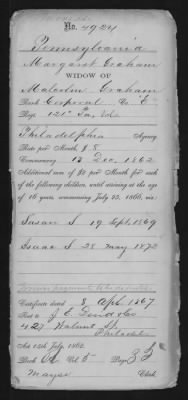 No. 4924
Pennsylvania
Margaret Graham
WIDOW OF
Malcolm Graham
Rank Corporal Co. E
Reg. 121" Pa. Vols
Philadelphia Agency
Rate per Month, $8.
Commencing 13 Dec. 1862
Additional sum of $2 per Month for each
of the following children, until arriving at the age
of 16 years, commencing July 25, 1866, viz:
Susan S 19 Sept. 1869
Isaac S 28 May 1872
Former payments to be deducted
Certificate dated 8 Apl. 1867
Sent to J. E.
427 Walnut St.
Philadel
Act 14th July, 1862.
Book Vol. 5 Page 35
Clerk.